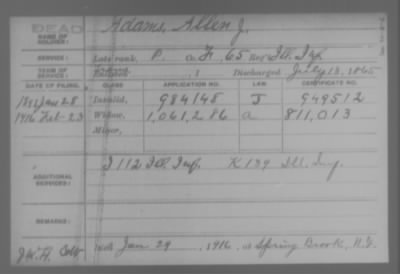 DEAD
NAME OF SOLDIER: Adams, Allen J.
SERVICE: Late rank, P. Co. H, 65 Reg't Ill. Inf.
TERM OF SERVICE: Enlisted , 1 Discharged July 13, 1865
DATE OF FILING. CLASS APPLICATION NO. LAW CERTIFICATE NO.
1891 Jan 28 Invalid, 984145 J 949512
1916 Feb 23 Widow, 1,061,286 a 811,013
Minor,
ADDITIONAL SERVICES: I 112 Ill. Inf. K 139 Ill. Inf.
REMARKS:
Died Jan 29, 1916, at Spring Brook, N.Y.